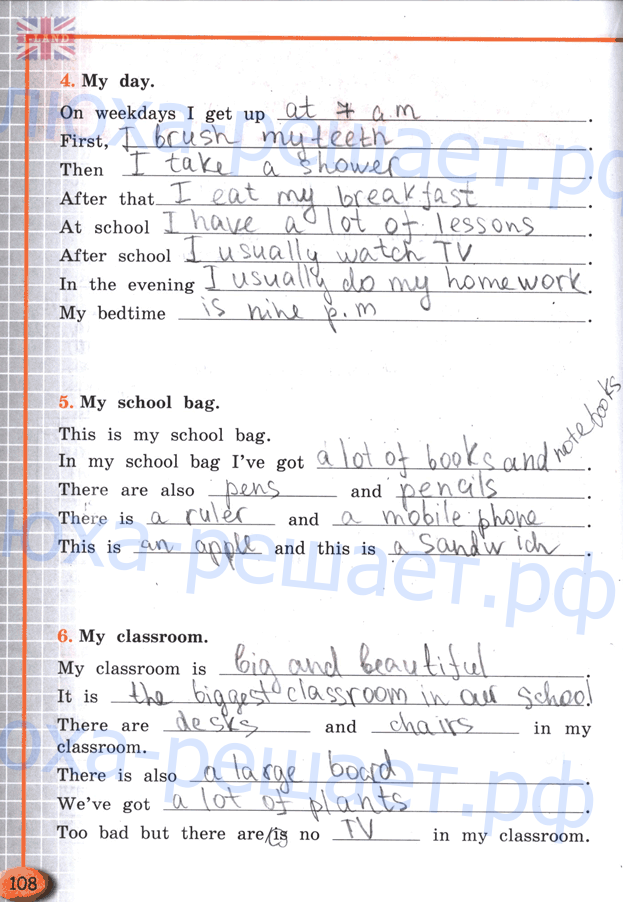 I-LAND
4. My day.
On weekdays I get up at 7 a.m.
First, I brush my teeth.
Then I take a shower.
After that I eat my breakfast.
At school I have a lot of lessons.
After school I usually watch TV.
In the evening I usually do my homework.
My bedtime is nine p.m.
5. My school bag.
This is my school bag.
In my school bag I've got a lot of books and notebooks.
There are also pens and pencils.
There is a ruler and a mobile phone.
This is an apple and this is a sandwich.
6. My classroom.
My classroom is big and beautiful.
It is the biggest classroom in our school.
There are desks and chairs in my
classroom.
There is also a large board.
We've got a lot of plants.
Too bad but there are/is no TV in my classroom.
108
юха-решает.рф
юха-решает.рф
юха-решает.рф